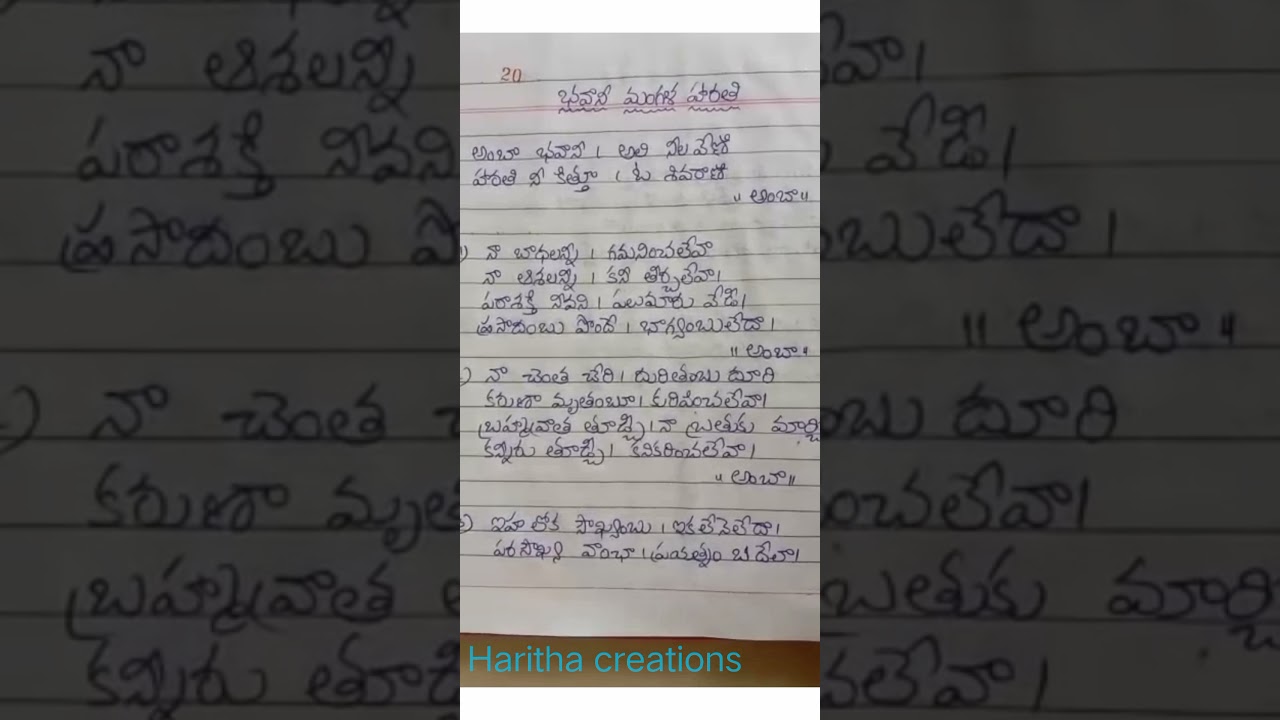 20
భవాని మంగళ హారతి
అంబా భవాని । అలి నీల వేణి
హారతి నీ కిత్తూ । ఓ శివరాణి
"అంబా"
నా బాధలన్ని । గమనించలేవా
నా ఆశలన్ని । కని తీర్చలేవా।
పరాశక్తి నీవని । పలుమారు వేడి।
ప్రసాదంబు పొందే । భాగ్యంబులేదా।
"అంబా"
నా చెంత చేరి। దురితంబు దూరి
కరుణా మృతంబూ। కురిపించలేవా।
బ్రహ్మవ్రాత తూడ్చి। నా బ్రతుకు మార్చి
కన్నీరు తూడ్చి। కనికరించలేవా।
"అంబా"
ఇహ లోక సౌఖ్యంబు । ఇకలేనెలేదా।
పర సౌఖ్య వాంఛా । ప్రయత్నం
Haritha creations